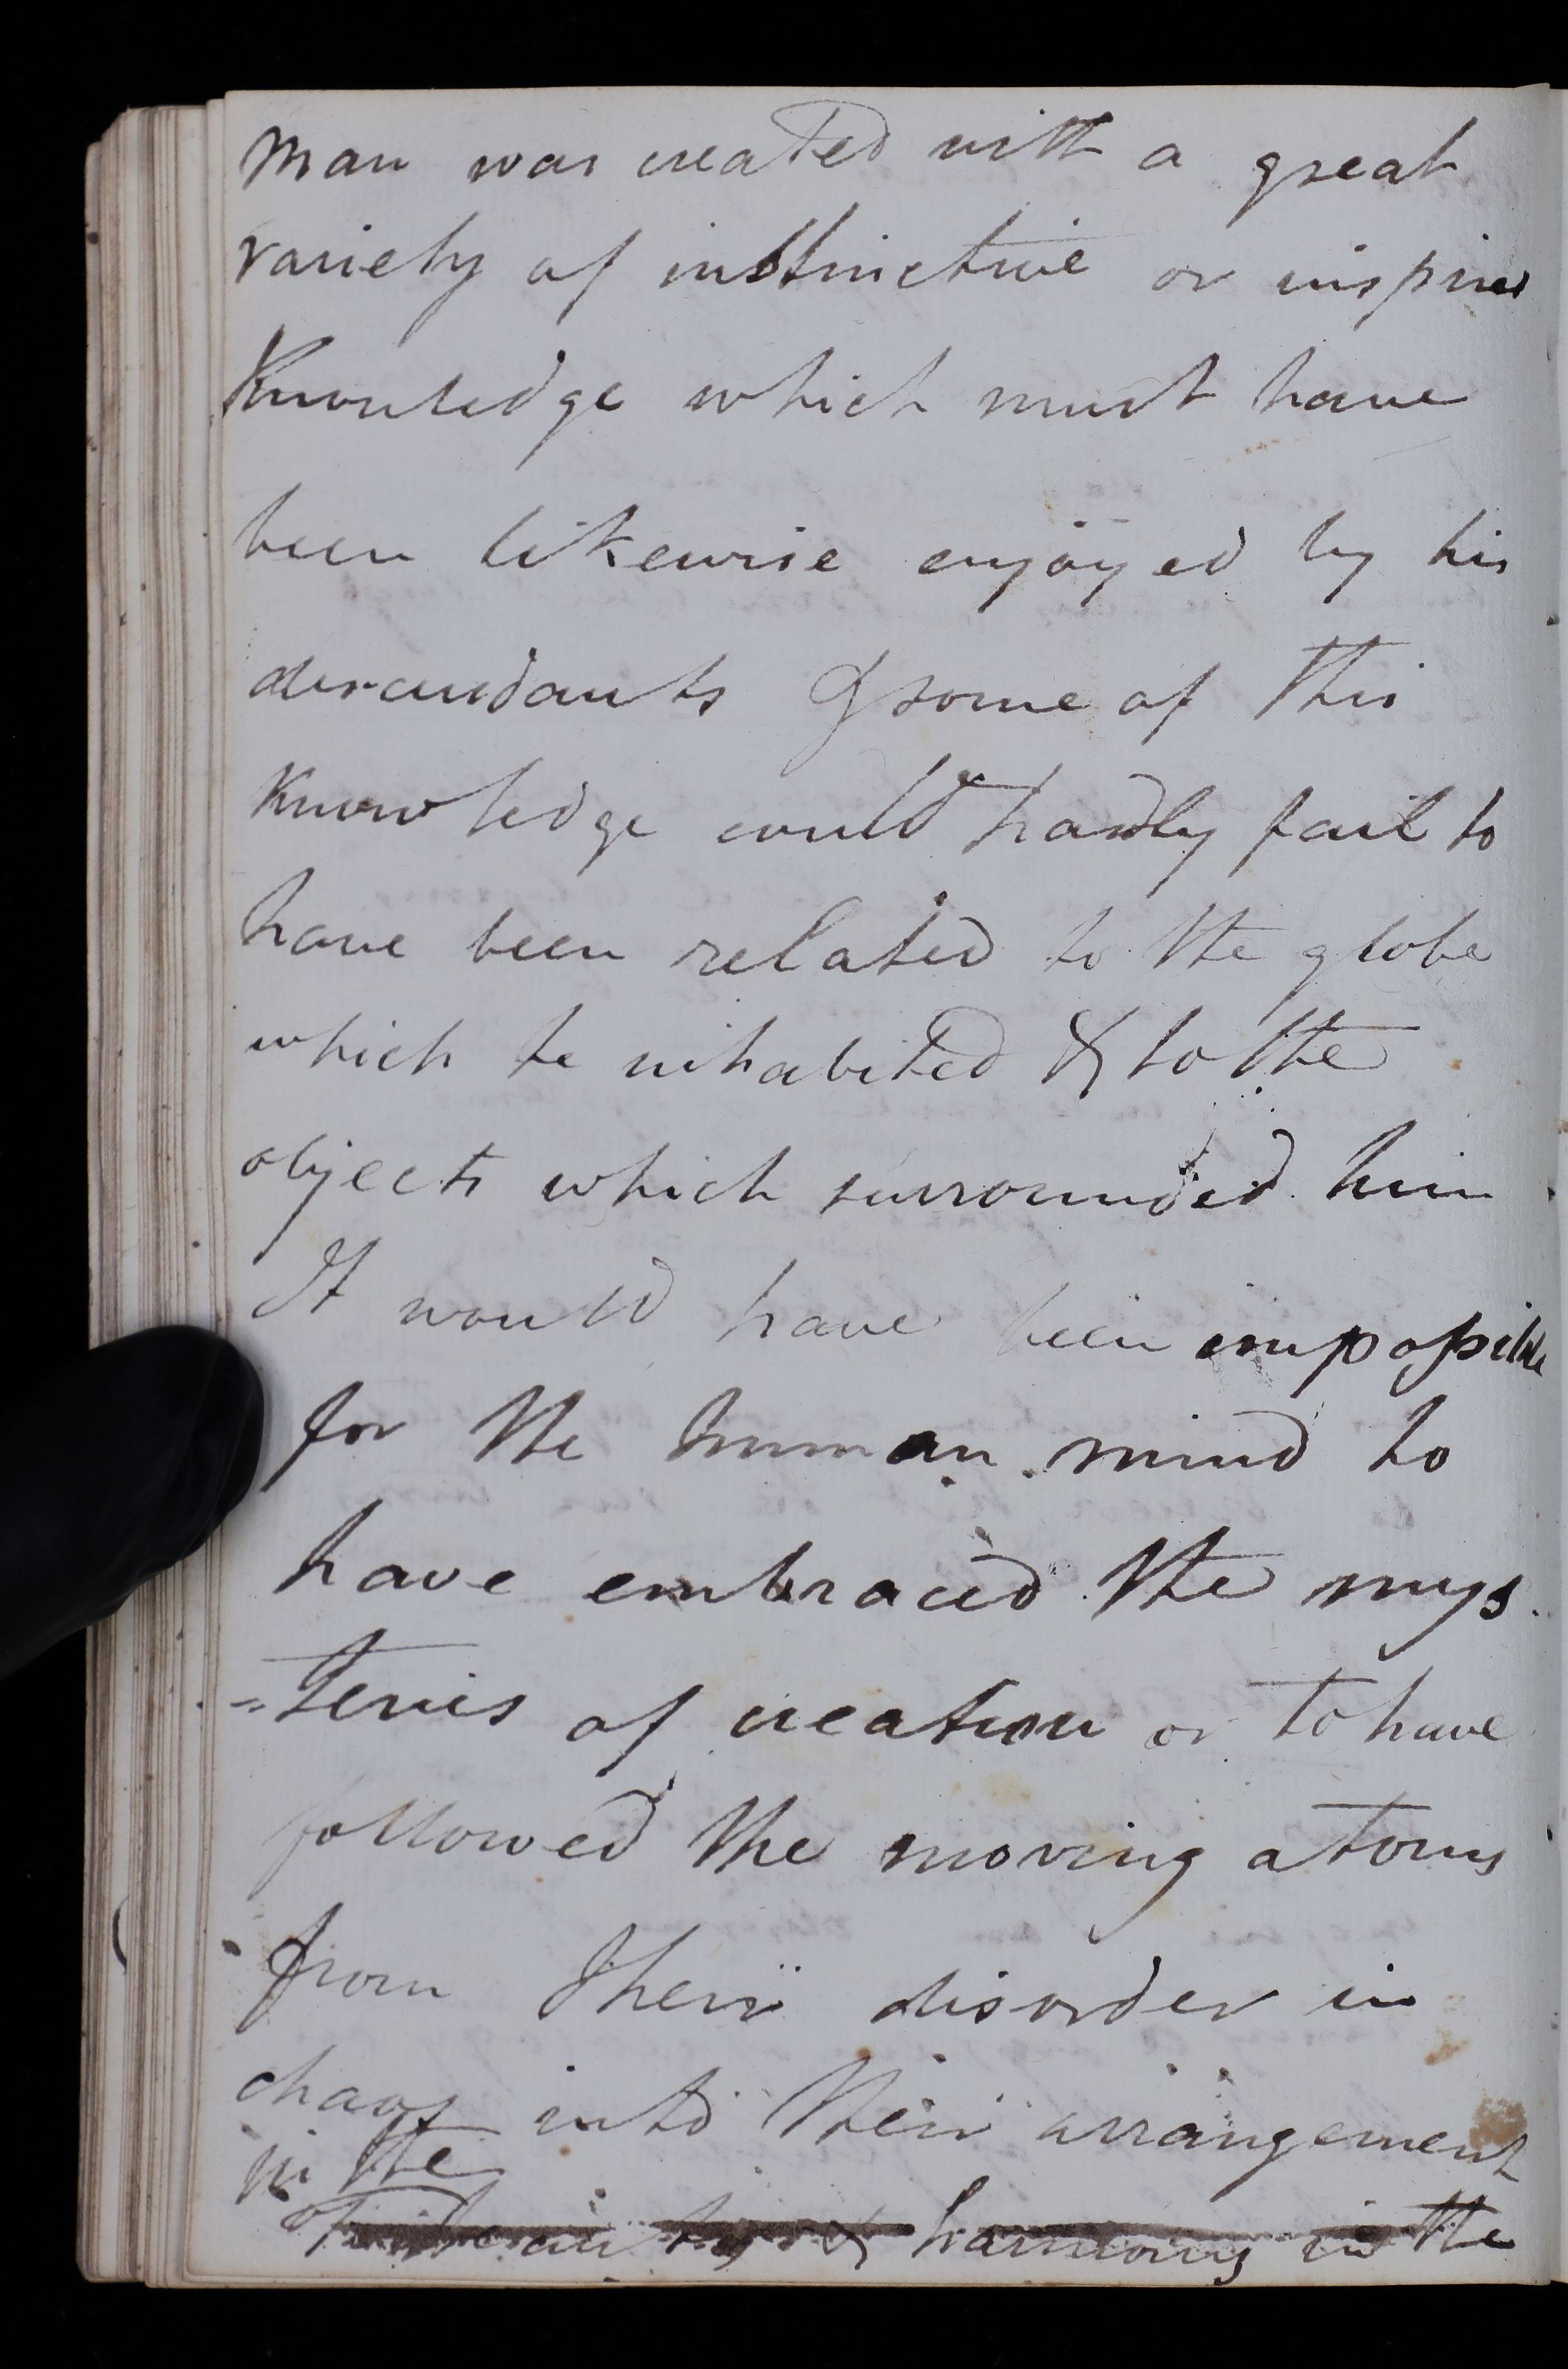 man was created with a great
variety of instinctive or inspired
Knowledge which must have
been likewise enjoyed by his
descendants & some of this
Knowledge could hardly fail to
have been related to the globe
which he inhabited & to the
objects which surrounded him
It would have been impossible
for the human mind to
have embraced the mys
=teries of creation or to have
followed the moving atoms
from their disorder in
chaos into their arrangement
in the
beauty & harmony in the